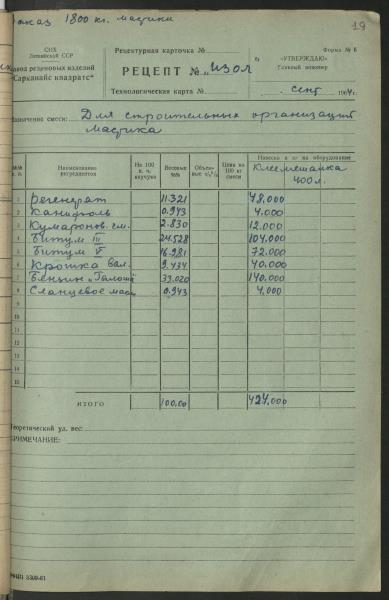 заказ 1800 кг. мастики
19
СНХ
Латвийской ССР
завод резиновых изделий
"Сарканайс квадратс"
Рецептурная карточка №
РЕЦЕПТ № „изол
Технологическая карта №
Форма № 6
«УТВЕРЖДАЮ»
Главный инженер
сент 1964 г.
Назначение смеси: Для строительных организаций
мастика
№№ п. п. Наименование ингредиентов На 100 в. ч. каучука Весовые %% Объемные %% Цена на 100 кг смеси Навеска в кг на оборудование
Клеемешалка
400 л.
1 Регенерат 11.321 48,000
2 Канифоль 0.943 4.000
3 Кумаронов. см. 2.830 12.000
4 Битум III 24.528 104,000
5 Битум V 16.981 72.000
6 Крошка вал. 9.434 40.000
7 Бензин „Галоша" 33.020 140.000
8 Сланцевое масло 0.943 4.000
9
10
11
12
13
14
15
ИТОГО 100.00 424,000
Теоретический уд. вес:
ПРИМЕЧАНИЕ:
3309-61